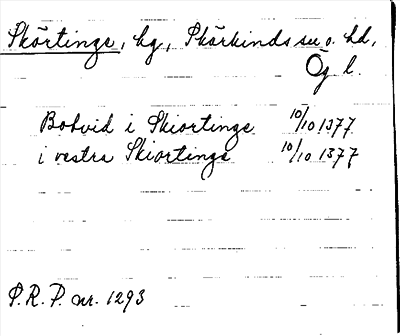 Skörtinge, bg, Skärkinds su o. hd,
Ög l.
Botvid i Skiortinge 10/10 1377
i vestra Skiortinge 10/10 1377
P.R.P. nr. 1293